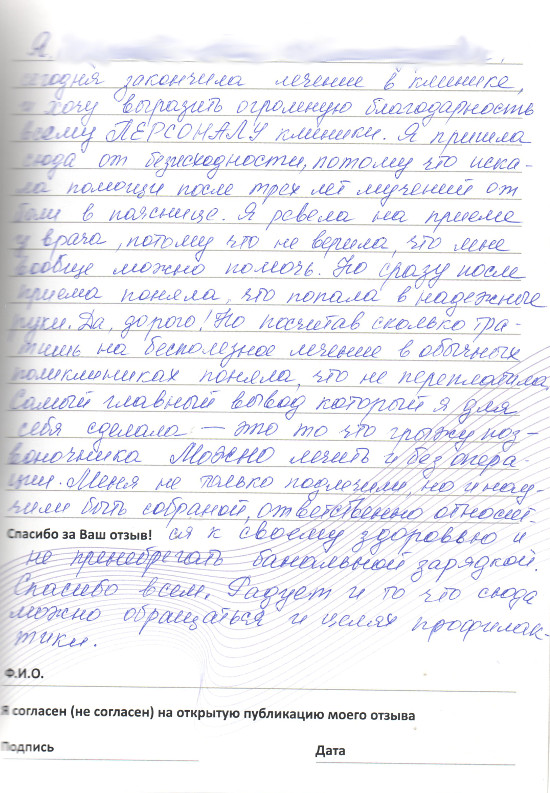 Я,
сегодня закончила лечение в клинике,
и хочу выразить огромную благодарность
всему ПЕРСОНАЛУ клиники. Я пришла
сюда от безисходности, потому что иска-
ла помощи после трех лет мучений от
боли в пояснице. Я ревела на приеме
у врача, потому что не верила, что мне
вообще можно помочь. Но сразу после
приема поняла, что попала в надежные
руки. Да, дорого! Но посчитав сколько тра-
тишь на бесполезное лечение в обычных
поликлиниках поняла, что не переплатила.
Самый главный вывод который я для
себя сделала — это то что грыжу поз-
воночника Можно лечить и без опера-
ции. Меня не только подлечили, но и нау-
чили быть собраной, ответственно относит-
Спасибо за Ваш отзыв! ся к своему здоровью и
не пренебрегать банальной зарядкой.
Спасибо всем. Радует и то что сюда
можно обращаться и целях профилак-
тики.
Ф.И.О.
Я согласен (не согласен) на открытую публикацию моего отзыва
Подпись Дата